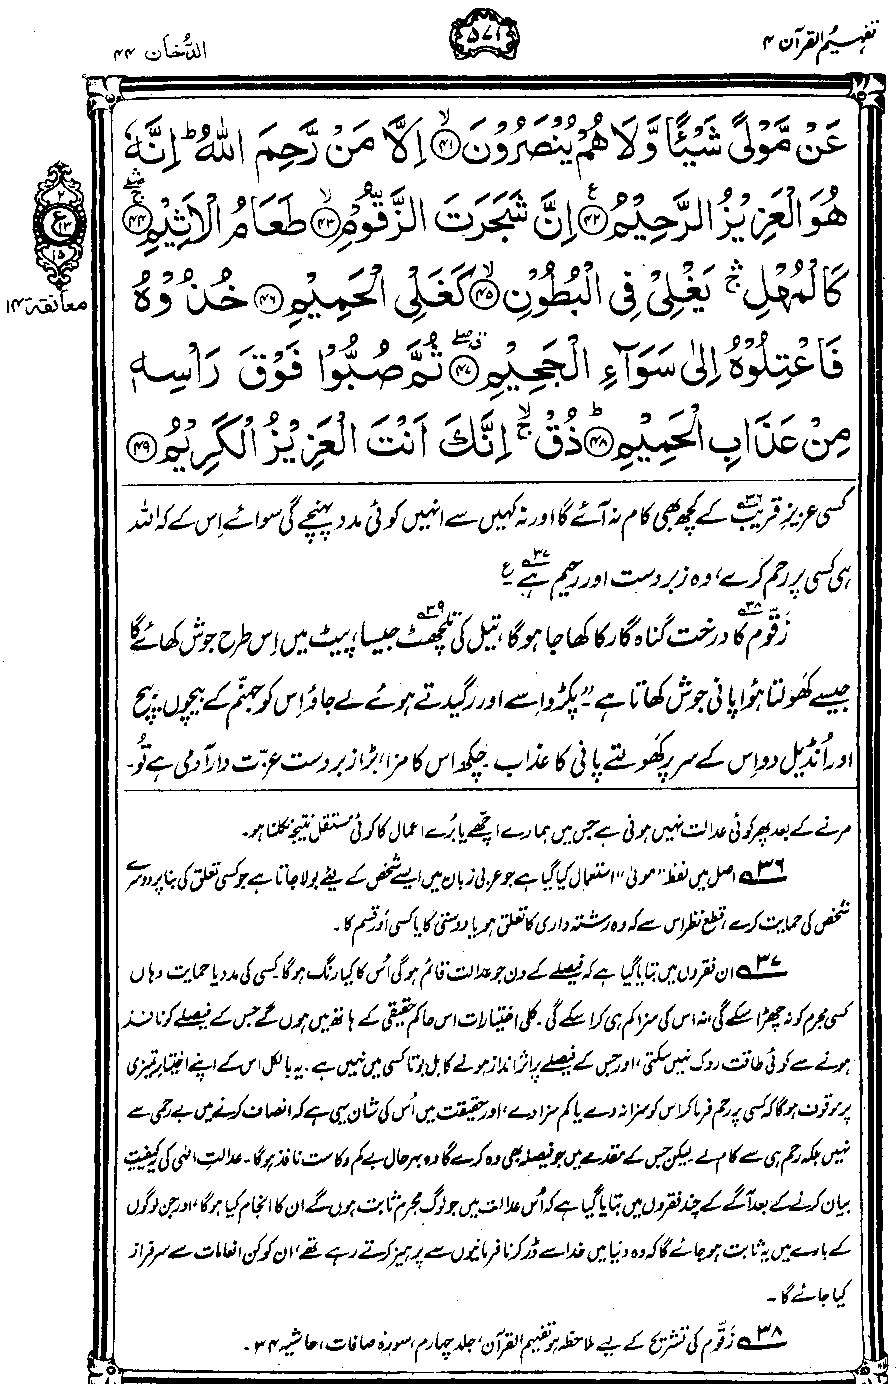 تفہیم القرآن ۴
۵۷۱
الدُّخان ۴۴
عَنْ مَّوْلًى شَيْئًا وَّلَا هُمْ يُنْصَرُوْنَ ﴿۴۱﴾ اِلَّا مَنْ رَّحِمَ اللّٰهُ ؕ اِنَّهٗ
هُوَ الْعَزِيْزُ الرَّحِيْمُ ﴿۴۲﴾ اِنَّ شَجَرَتَ الزَّقُّوْمِ ﴿۴۳﴾ طَعَامُ الْاَثِيْمِ ﴿۴۴﴾
۲
ع
۱۳
۱۵
كَالْمُهْلِ ۚۛ يَغْلِيْ فِي الْبُطُوْنِ ﴿۴۵﴾ كَغَلْيِ الْحَمِيْمِ ﴿۴۶﴾ خُذُوْهُ
معانقة ۱۴
فَاعْتِلُوْهُ اِلٰى سَوَآءِ الْجَحِيْمِ ﴿۴۷﴾ ثُمَّ صُبُّوْا فَوْقَ رَاْسِهٖ
مِنْ عَذَابِ الْحَمِيْمِ ﴿۴۸﴾ ذُقْ ۚ اِنَّكَ اَنْتَ الْعَزِيْزُ الْكَرِيْمُ ﴿۴۹﴾
کسی عزیزِ قریب۳۶ کے کچھ بھی کام نہ آئے گا اور نہ کہیں سے انہیں کوئی مدد پہنچے گی سوائے اِس کے کہ اللہ
ہی کسی پر رحم کرے، وہ زبردست اور رحیم ہے۳۷ ع
زَقّوم۳۸ کا درخت گناہ گار کا کھاجا ہوگا، تیل کی تلچھٹ۳۹ جیسا، پیٹ میں اِس طرح جوش کھائے گا
جیسے کھولتا ہُوا پانی جوش کھاتا ہے۔ "پکڑو اِسے اور رگیدتے ہوئے لے جاؤ اِس کو جہنّم کے بیچوں بیچ
اور اُنڈیل دو اِس کے سر پر کھولتے پانی کا عذاب۔ چکھ اس کا مزا، بڑا زبردست عزّت دار آدمی ہے تُو۔
مرنے کے بعد پھر کوئی عدالت نہیں ہونی ہے جس میں ہمارے اچھّے یا بُرے اعمال کا کوئی مستقل نتیجہ نکلنا ہو۔
۳۶ اصل میں لفظ "مولیٰ" استعمال کیا گیا ہے جو عربی زبان میں ایسے شخص کے لیے بولا جاتا ہے جو کسی تعلق کی بنا پر دوسرے
شخص کی حمایت کرے، قطع نظر اس سے کہ وہ رشتہ داری کا تعلق ہو یا دوستی کا یا کسی اَور قسم کا۔
۳۷ ان فقروں میں بتایا گیا ہے کہ فیصلے کے دن جو عدالت قائم ہوگی اُس کا کیا رنگ ہوگا۔ کسی کی مدد یا حمایت وہاں
کسی مجرم کو نہ چھڑا سکے گی، نہ اس کی سزا کم ہی کرا سکے گی۔ کلی اختیارات اس حاکم حقیقی کے ہاتھ میں ہوں گے جس کے فیصلے کو نافذ
ہونے سے کوئی طاقت روک نہیں سکتی، اور جس کے فیصلے پر اثر انداز ہونے کا بل بوتا کسی میں نہیں ہے۔ یہ بالکل اس کے اپنے اختیارِ تمیزی
پر موقوف ہوگا کہ کسی پر رحم فرما کر اس کو سزا نہ دے یا کم سزا دے، اور حقیقت میں اُس کی شان یہی ہے کہ انصاف کرنے میں بے رحمی سے
نہیں بلکہ رحم ہی سے کام لے۔ لیکن جس کے مقدمے میں جو فیصلہ بھی وہ کرے گا وہ بہرحال بے کم و کاست نافذ ہوگا۔ عدالتِ الٰہی کی کیفیت
بیان کرنے کے بعد آگے کے چند فقروں میں بتایا گیا ہے کہ اُس عدالت میں جو لوگ مجرم ثابت ہوں گے ان کا انجام کیا ہوگا، اور جن لوگوں
کے بارے میں یہ ثابت ہو جائے گا کہ وہ دنیا میں خدا سے ڈر کر نافرمانیوں سے پرہیز کرتے رہے تھے، ان کو کن انعامات سے سرفراز
کیا جائے گا۔
۳۸ زَقّوم کی تشریح کے لیے ملاحظہ ہو تفہیم القرآن، جلد چہارم، سورہ صافات، حاشیہ ۳۴۔